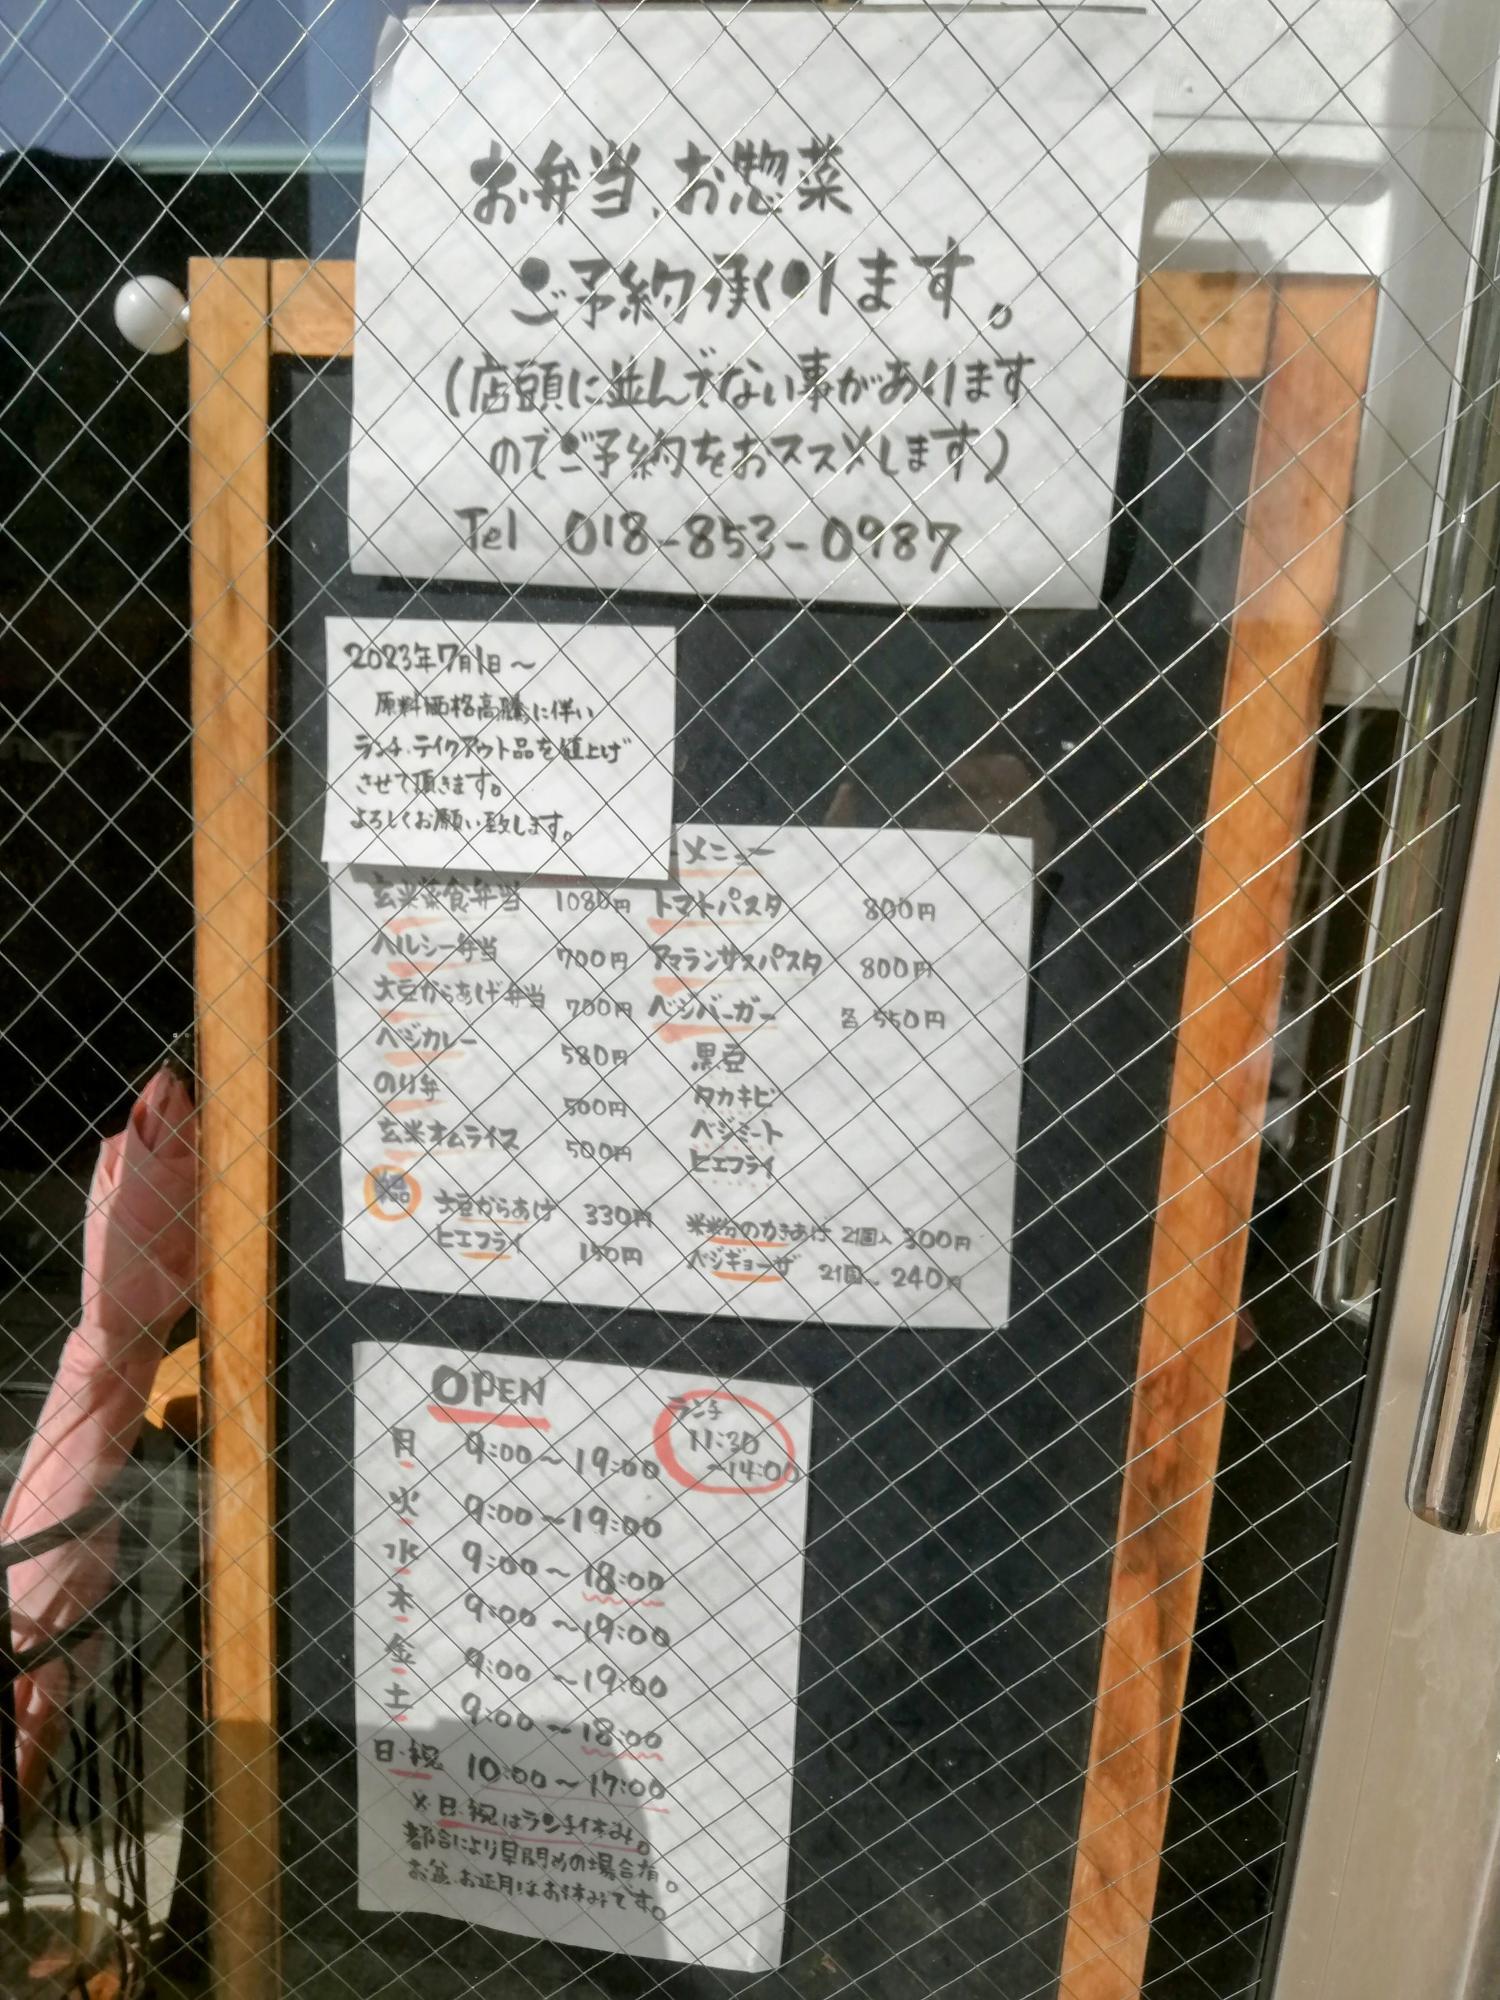 お弁当、お惣菜
ご予約承ります。
(店頭に並んでない事があります
のでご予約をおススメします)
Tel 018-853-0987
2023年7月1日～
原料価格高騰に伴い
ランチ、テイクアウト品を値上げ
させて頂きます。
よろしくお願い致します。
メニュー
玄米菜食弁当 1080円
ヘルシー弁当 700円
大豆からあげ弁当 700円
ベジカレー 580円
のり弁 500円
玄米オムライス 500円
トマトパスタ 800円
アマランサスパスタ 800円
ベジバーガー 各550円
黒豆
タカキビ
ベジミート
ヒエフライ
大豆からあげ 330円
ヒエフライ 150円
米粉のかきあげ 2個入 300円
ベジギョーザ 2個入 240円
OPEN
ランチ
11:30
～14:00
月 9:00～19:00
火 9:00～19:00
水 9:00～18:00
木 9:00～19:00
金 9:00～19:00
土 9:00～18:00
日・祝 10:00～17:00
※日・祝はランチ休み。
都合により早閉めの場合有。
お盆、お正月はお休みです。